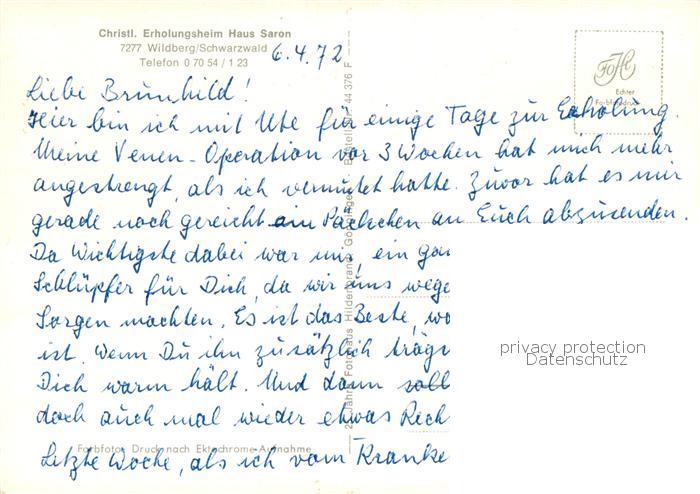 Christl. Erholungsheim Haus Saron
7277 Wildberg/Schwarzwald
Telefon 0 70 54 / 1 23
6.4.72
FOH
Echter
Liebe Brunhild!
Hier bin ich mit Ute für einige Tage zur Erholung.
Meine Venen-Operation vor 3 Wochen hat mich mehr
angestrengt, als ich vermutet hatte. Zuvor hat es mir
gerade noch gereicht ein Päckchen an Euch abzusenden.
Da Wichtigste dabei war mir, ein
Schlüpfer für Dich, da wir uns wege
Sorgen machten. Es ist das Beste, wo
ist. Wenn Du ihn zusätzlich trägs
Dich warm hält. Und dann soll
doch auch mal wieder etwas Rech
Letzte Woche, als ich vom Kranke
Farbfoto: Druck nach Ektachrome-Aufnahme
privacy protection
Datenschutz